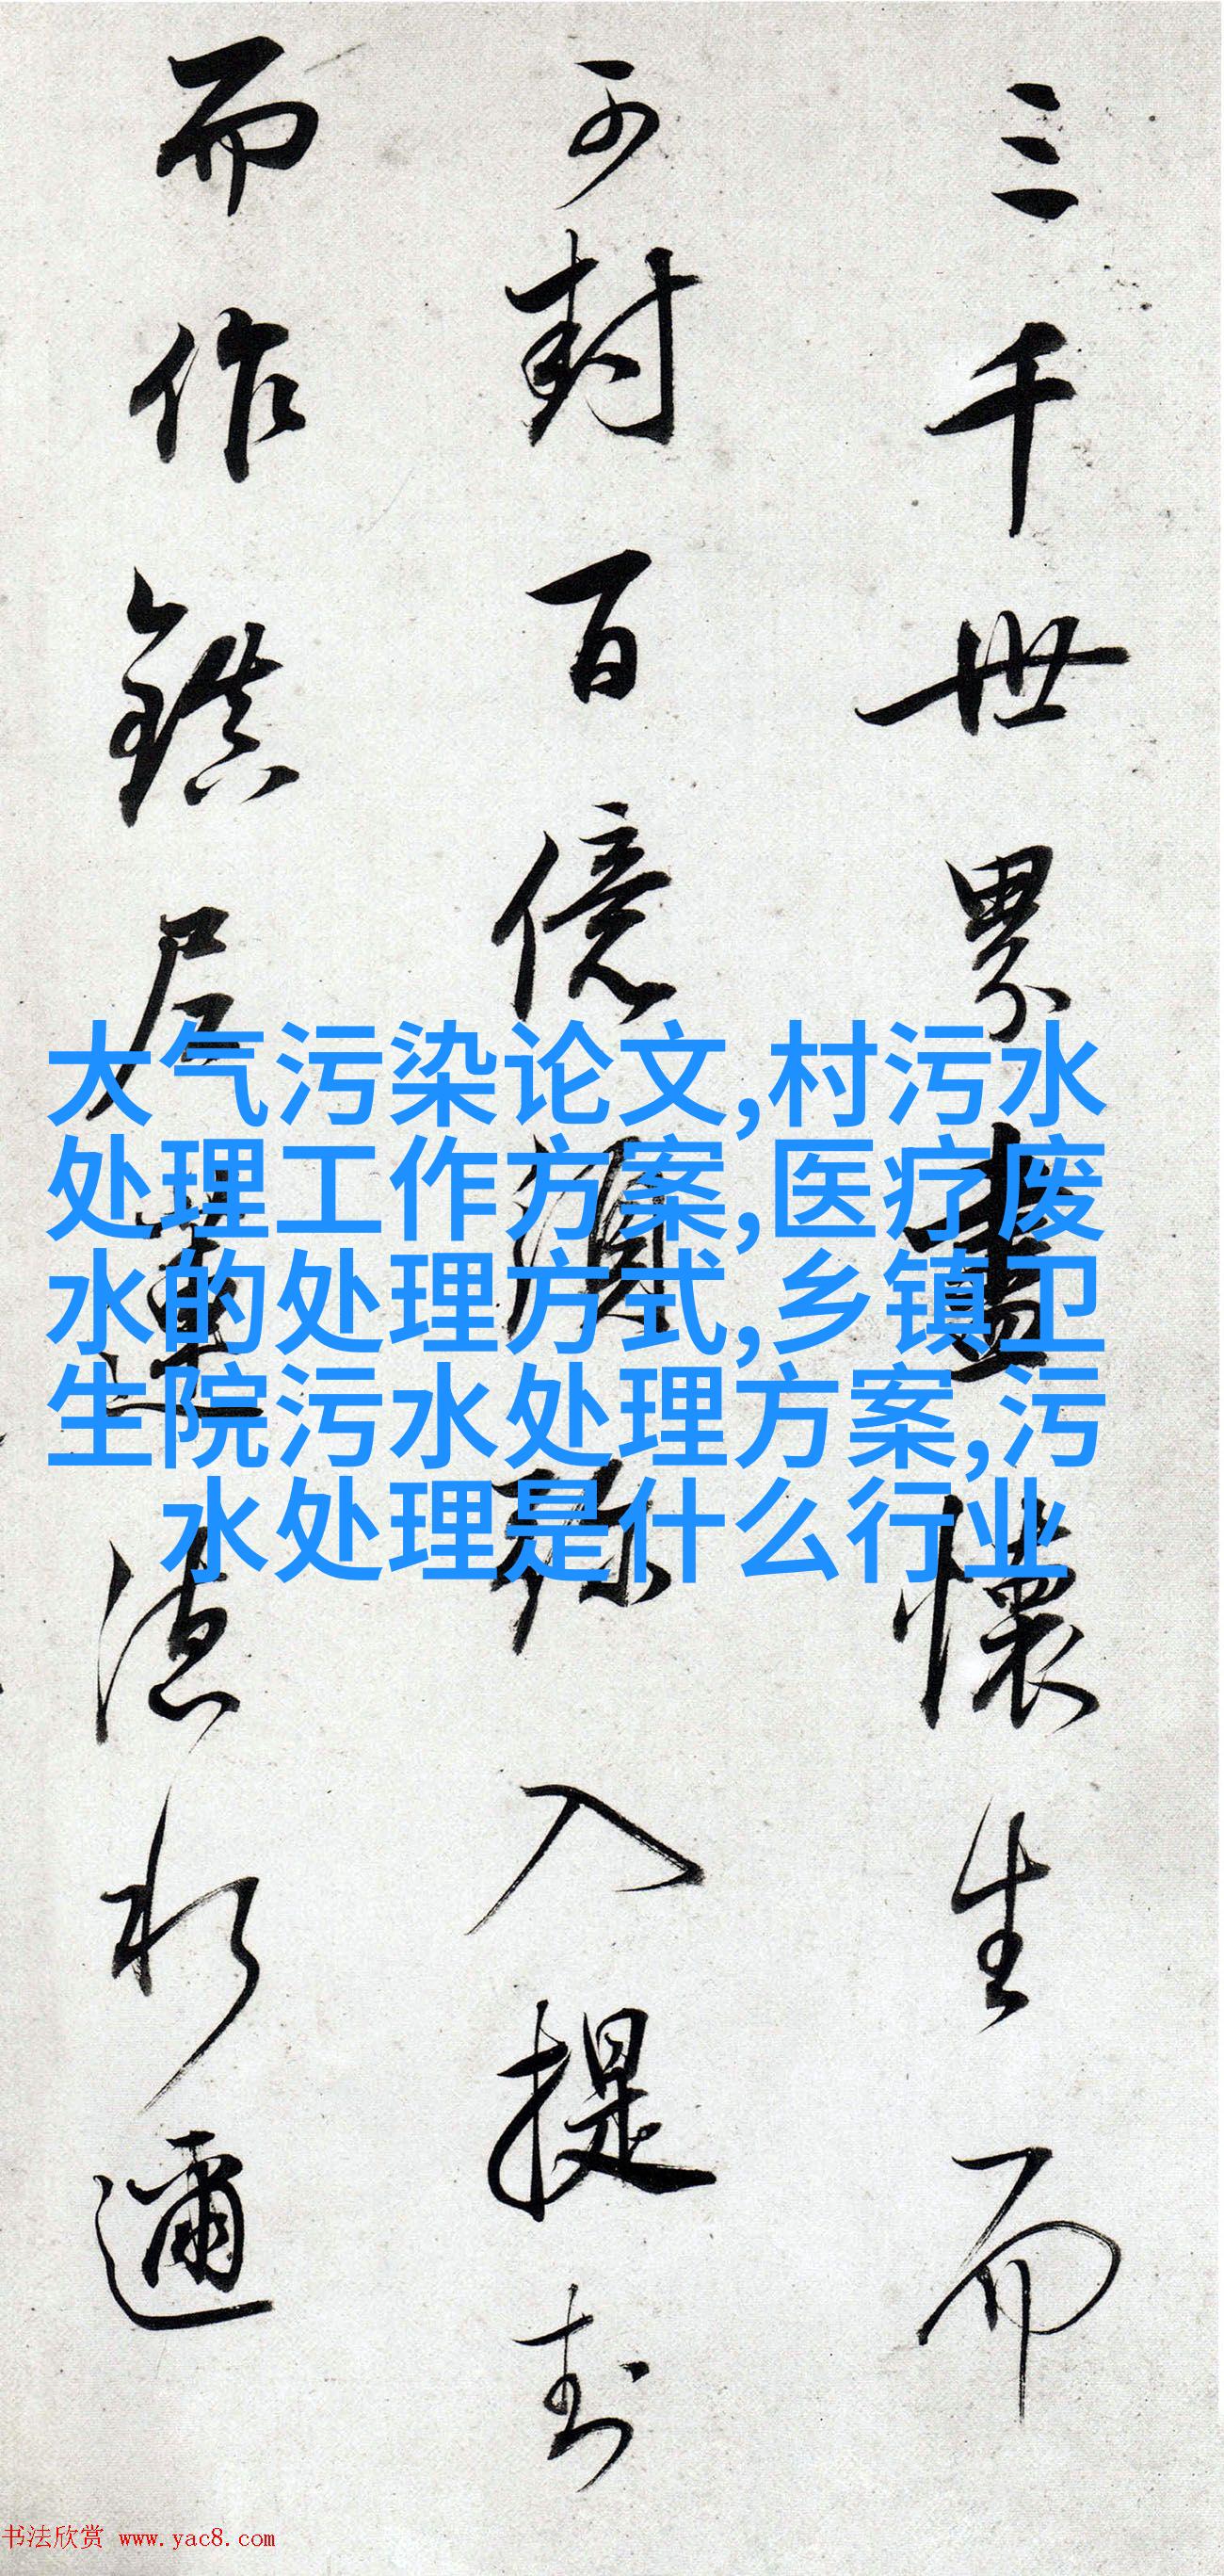 三千世界盡懷生而
可封百億須弥入提封
而作鎮居蓮
邇
大气污染论文,村污水
处理工作方案,医疗废
水的处理方式,乡镇卫
生院污水处理方案,污
水处理是什么行业
书法欣赏 www.yac8.com